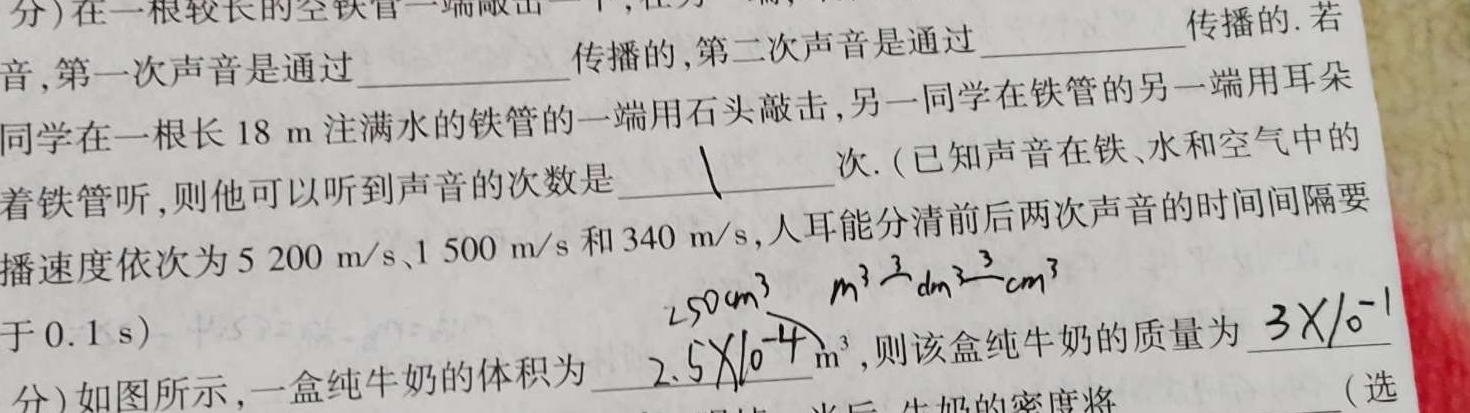 分)在一根较长的空铁管一端敲击一下,在另一端
音,第一次声音是通过________传播的,第二次声音是通过________传播的.若
同学在一根长 18 m 注满水的铁管的一端用石头敲击,另一同学在铁管的另一端用耳朵
着铁管听,则他可以听到声音的次数是 1 次.(已知声音在铁、水和空气中的
播速度依次为 5 200 m/s、1 500 m/s 和 340 m/s,人耳能分清前后两次声音的时间间隔要
于 0.1 s)
250cm³ m³ 3 dm³ 3 cm³
分)如图所示,一盒纯牛奶的体积为 2.5×10⁻⁴ m³,则该盒纯牛奶的质量为 3×10⁻¹
牛奶的密度将________(选